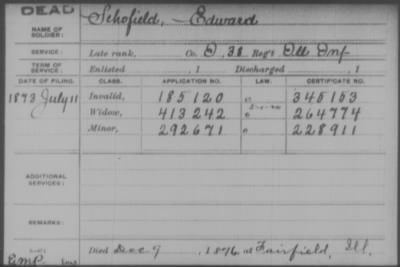 DEAD
NAME OF SOLDIER: Schofield, Edward
SERVICE: Late rank, Co. D, 38 Reg't Ill Inf
TERM OF SERVICE: Enlisted , 1 Discharged , 1
DATE OF FILING. CLASS. APPLICATION NO. LAW. CERTIFICATE NO.
1873 July 11 Invalid, 185120 345153
Widow, 413242 264774
Minor, 292671 228911
ADDITIONAL SERVICES:
REMARKS:
Died Dec 9, 1876 at Fairfield, Ill.